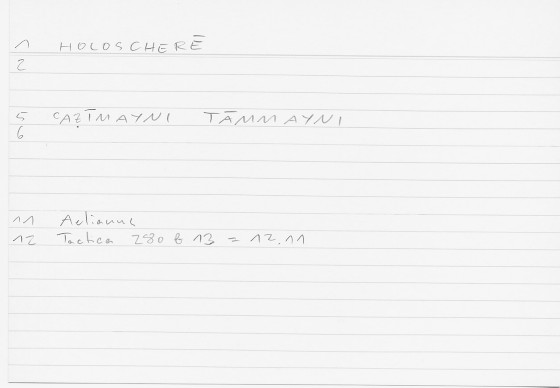 1 HOLOSCHERĒ
2
5 CAẒĪMAYNI TĀMMAYNI
6
11 Aelianus
12 Tactica 280 b 13 = 12.11